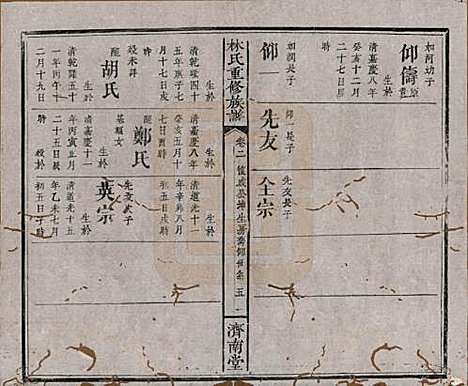 仰儔
如河幼子
清嘉慶八年
癸亥十二月
二十七日
仰一
如潤長子
先友
仰一長子
全宗
先友長子
林氏重修族譜
卷二
五
濟南堂
歿未詳
配
胡氏
生於
清乾隆四十
五年庚子七
月十七日
生於
清乾隆五十
一年丙
二月十九日
生於
清嘉慶八年
癸亥五月十
七日酉時
配
鄭氏
生於
清嘉慶十一
年丙寅五月
二十五日辰時
歿於
清道光十一
年辛卯八月
初五日戌時
英宗
先友次子
生於
清道光十五
年乙未七月
初五日子時